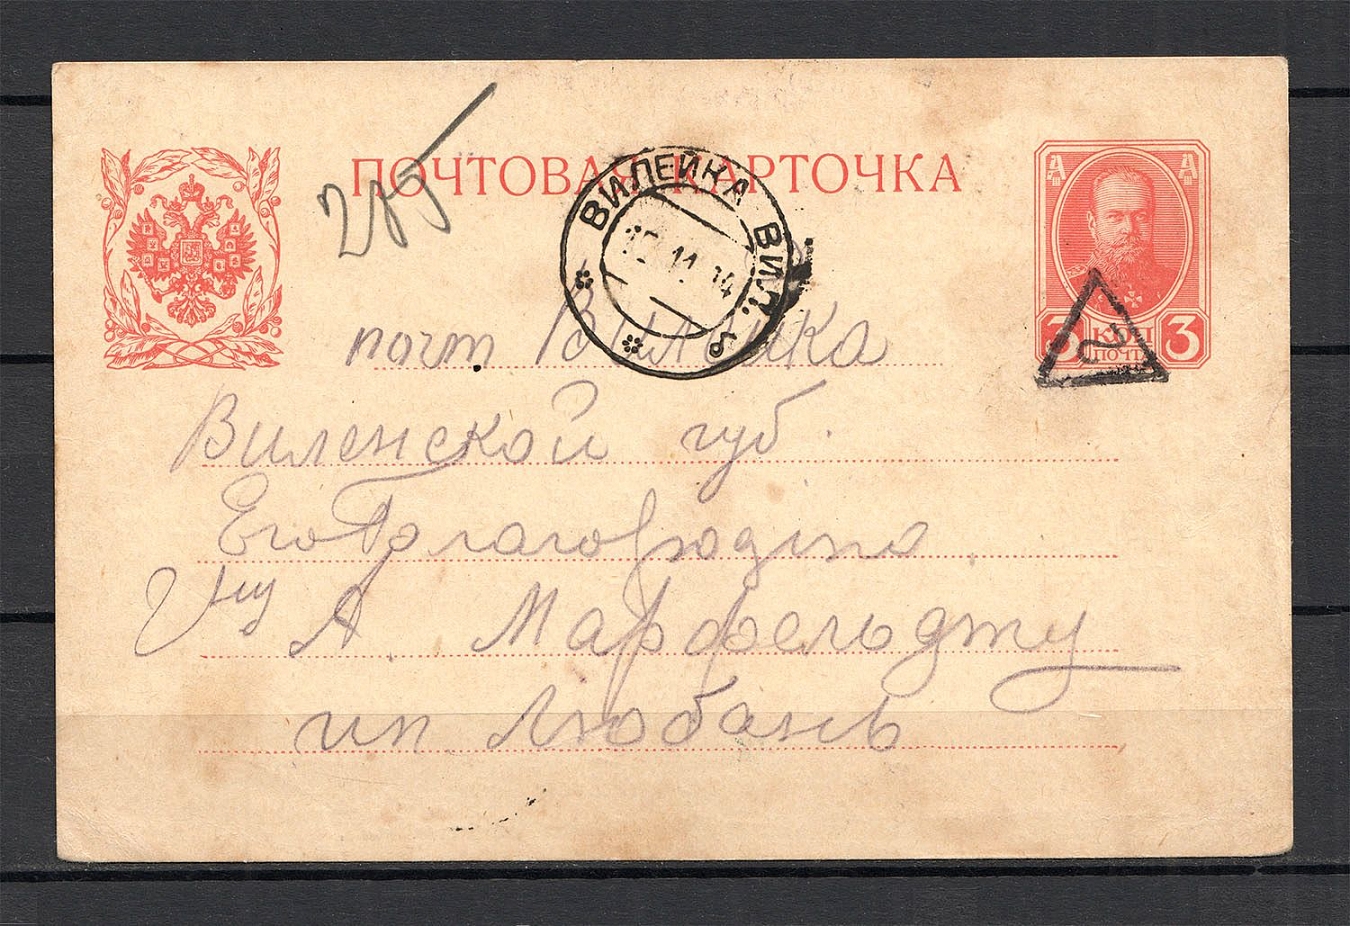 285
ПОЧТОВАЯ КАРТОЧКА
ВИЛЕЙКА ВИЛ.
11.14
3 КОП 3
ПОЧТ
почт Вилейка
Виленской губ.
Его Благородiю
А. Марфельдту
им Любань